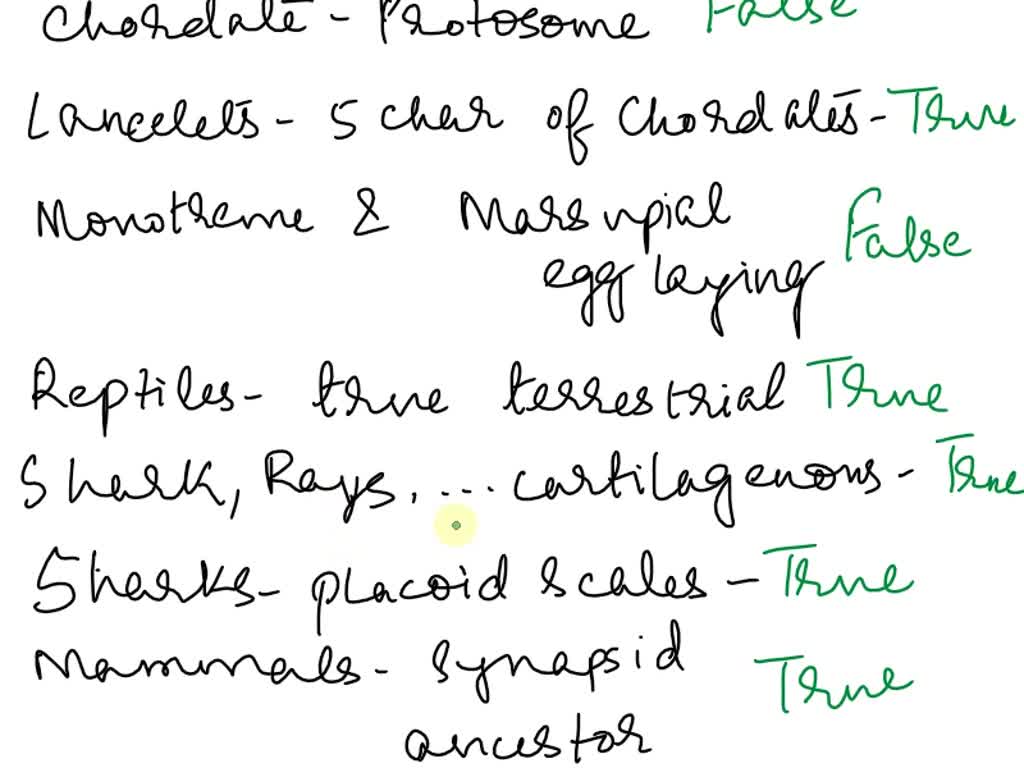 Chordate - Protosome False
Lancelets - 5 char of Chordates - True
Monotreme & Marsupial False
egg laying
Reptiles - true terrestrial True
Shark, Rays, ... cartilagenous - True
Sharks - placoid scales - True
Mammals - synapsid True
ancestor